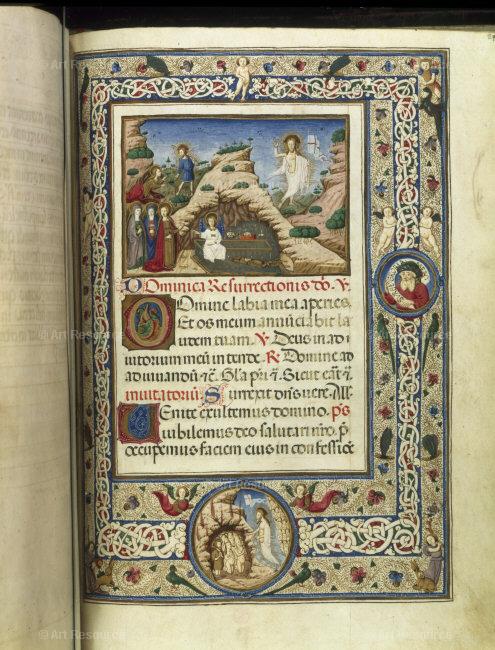 Dominica Resurrectionis dō. V.
Domine labia mea aperies.
Et os meum annūciabit la
udem tuam. V. Deus in ad i
iutorium meū intende. R. Domine ad
adiuvandū &c. Gl'a pri &c. Sicut erat &c.
inuitatoriū. Surrexit dn̄s vere. All'.
Venite exultemus domino. ps
iubilemus deo salutari nr̄o. p̄
occupemus faciem eius in confessiōe
© Art Resource